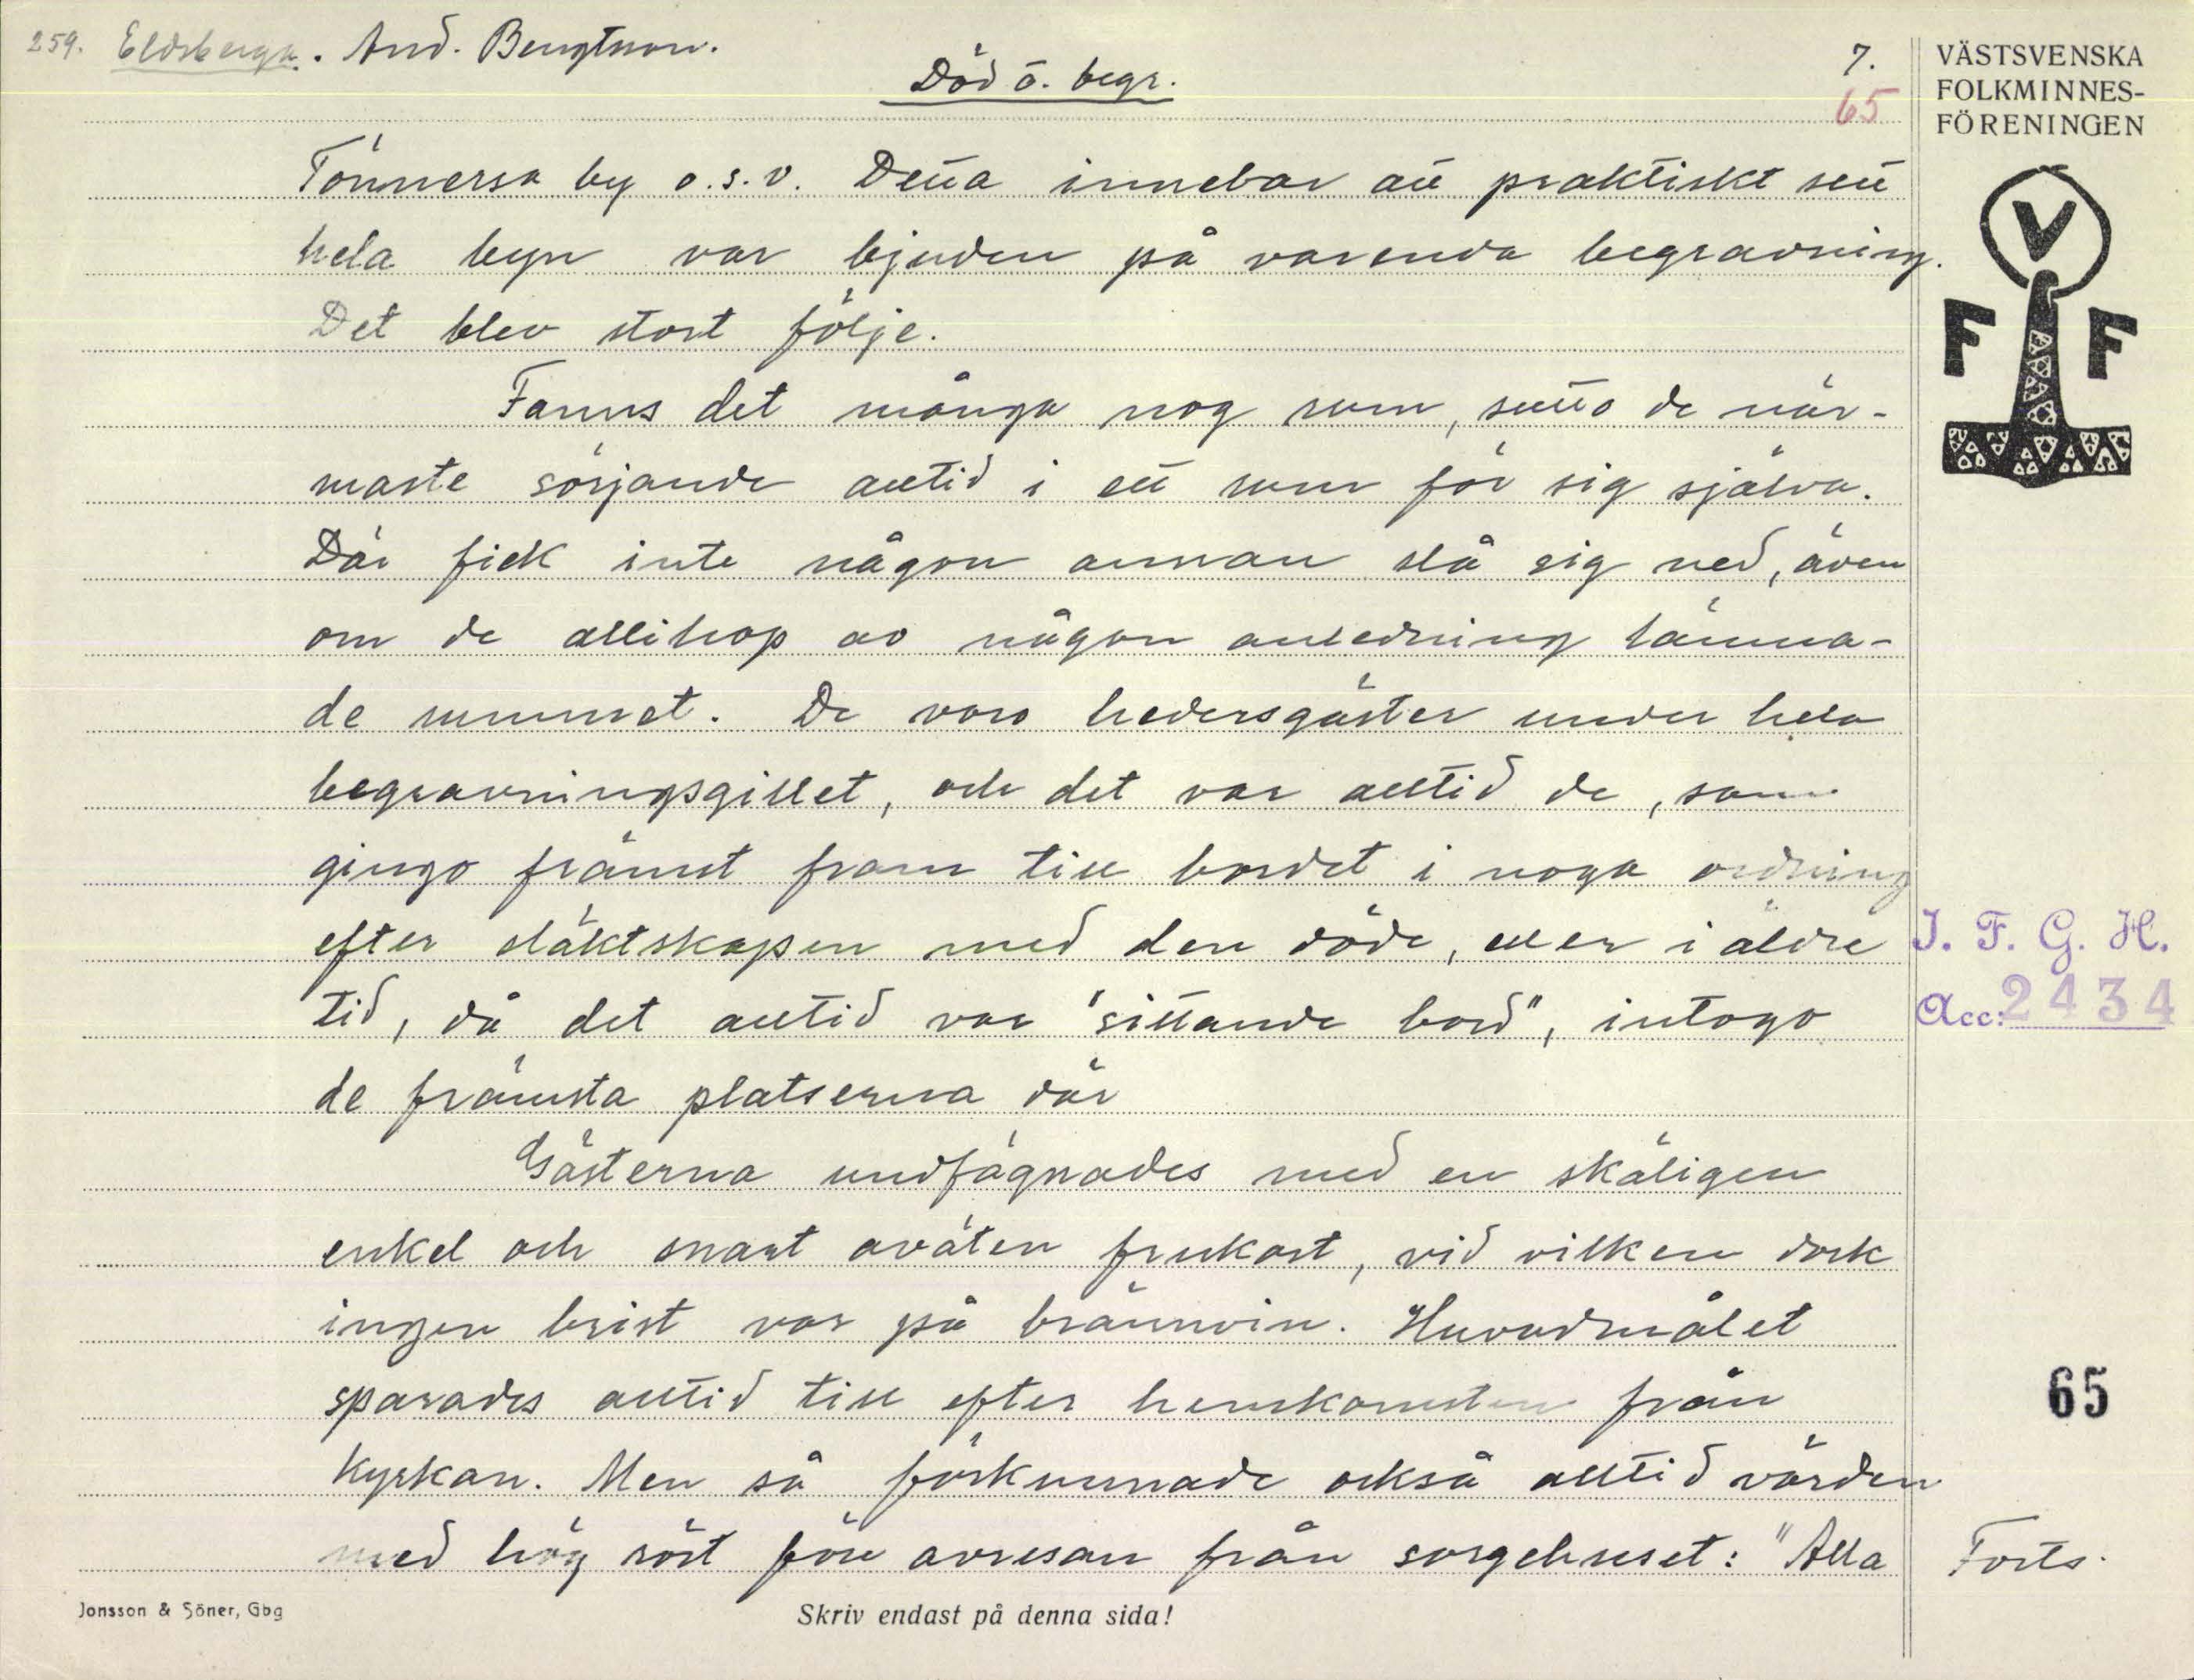 259. Eldsberga. And. Bengtsson.
Död o. begr.
7.
65
VÄSTSVENSKA
FOLKMINNES-
FÖRENINGEN
V
F F
Tönnersa by o.s.v. Detta innebar att praktiskt sett
hela byn var bjuden på varenda begravning.
Det blev stort följe.
Fanns det många nog rum, sutto de när-
maste sörjande alltid i ett rum för sig själva.
Där fick inte någon annan slå sig ned, även
om de allihop av någon anledning lämna-
de rummet. De voro hedersgäster under hela
begravningsgillet, och det var alltid de, som
gingo främst fram till bordet i noga ordning
efter släktskapen med den döde, eller i äldre
tid, då det alltid var "sittande bord", intogo
de främsta platserna där
Gästerna undfägnades med en skäligen
enkel och snart aväten frukost, vid vilken dock
ingen brist var på brännvin. Huvudmålet
sparades alltid till efter hemkomsten från
kyrkan. Men så förkunnade också alltid värden
med hög röst före avresan från sorgehuset: "Alla
Forts.
I. F. G. H.
Acc: 2434
65
Jonsson & Söner, Gbg
Skriv endast på denna sida!